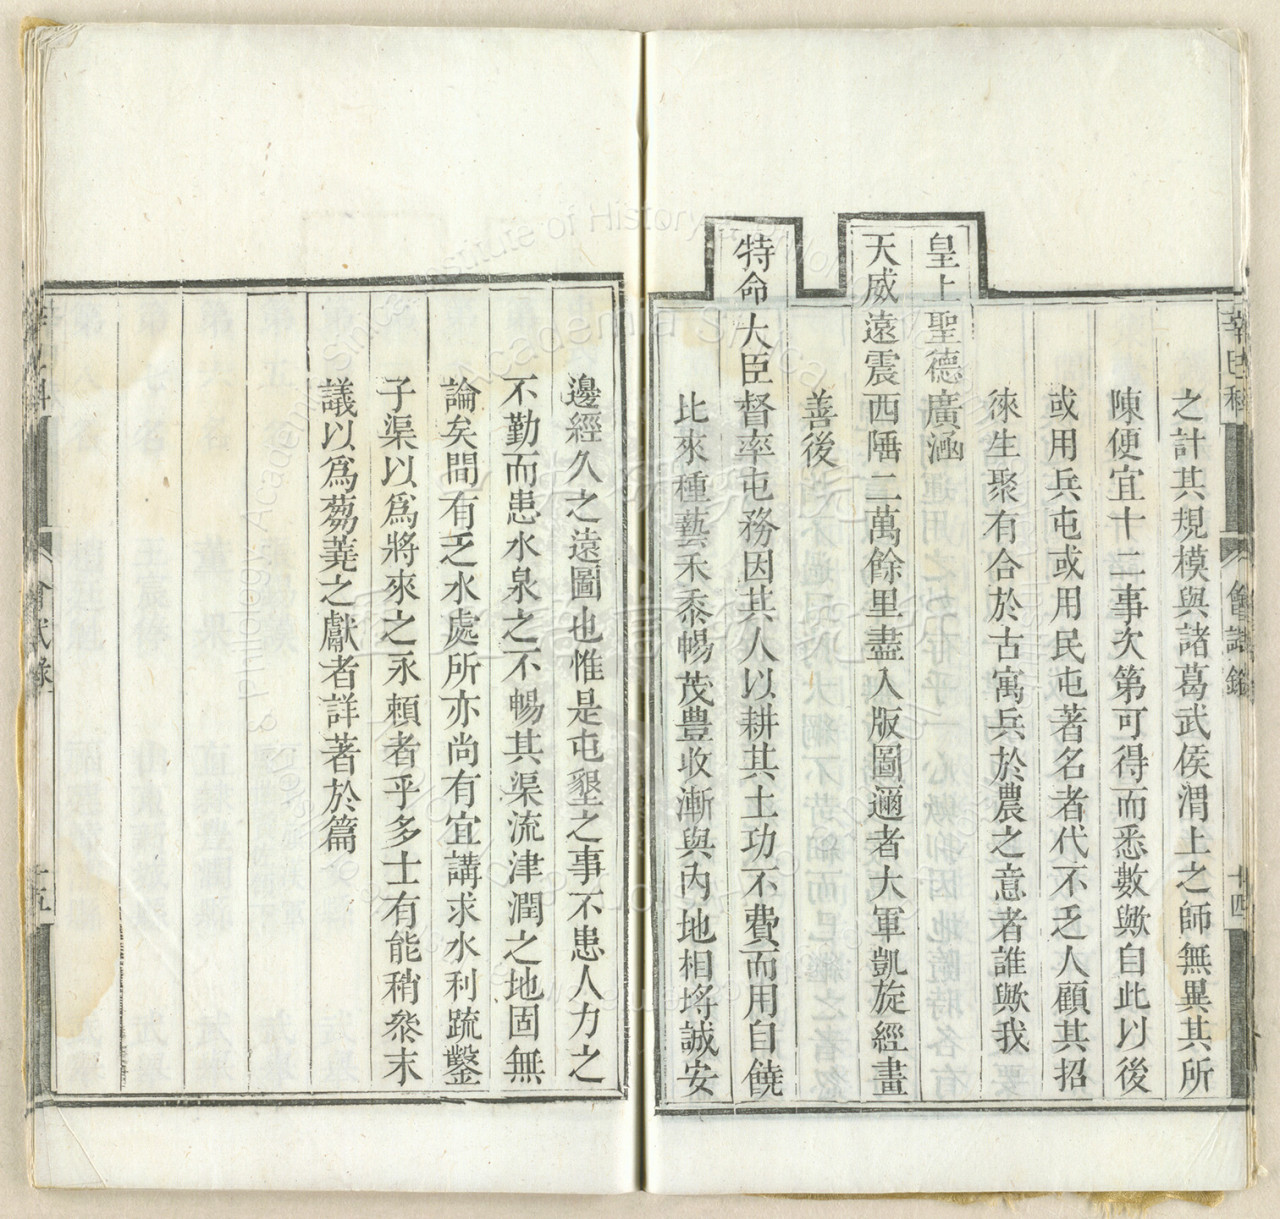 辛巳科
會試錄
十四
之計其規模與諸葛武侯渭上之師無異其所
陳便宜十二事次第可得而悉數歟自此以後
或用兵屯或用民屯著名者代不乏人顧其招
徠生聚有合於古寓兵於農之意者誰歟我
皇上聖德廣涵
天威遠震西陲二萬餘里盡入版圖邇者大軍凱旋經畫
善後
特命大臣督率屯務因其人以耕其土功不費而用自饒
比來種藝禾黍暢茂豊收漸與內地相埓誠安
邊經久之遠圖也惟是屯墾之事不患人力之
不勤而患水泉之不暢其渠流津潤之地固無
論矣間有乏水處所亦尚有宜講求水利疏鑿
子渠以為將來之永賴者乎多士有能稍叅末
議以為芻蕘之獻者詳著於篇
會試錄
十五